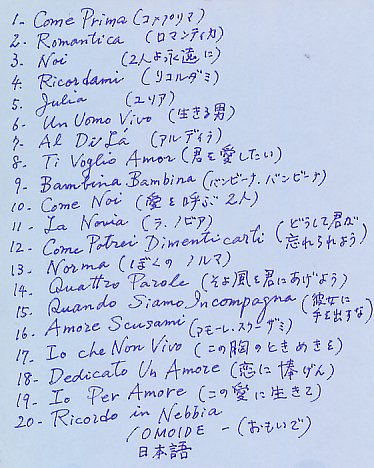 1- Come Prima (コメプリマ)
2- Romantica (ロマンティカ)
3- Noi (2人よ永遠に)
4- Ricordami (リコルダミ)
5. Julia (ユリア)
6- Un Uomo Vivo (生きる男)
7- Al Di Là (アルディラ)
8- Ti Voglio Amor (君を愛したい)
9- Bambina Bambina (バンビーナ・バンビーナ)
10- Come Noi (愛を呼ぶ2人)
11- La Novia (ラ・ノビア)
12- Come Potrei Dimenticarti (どうして君が忘れられよう)
13- Norma (ぼくのノルマ)
14- Quattro Parole (そよ風を君にあげよう)
15- Quando Siamo Incompagna (彼女に手を出すな)
16- Amore Scusami (アモーレ・スクーザミ)
17- Io che Non Vivo (この胸のときめきを)
18- Dedicato Un Amore (恋に捧げん)
19- Io Per Amore (この愛に生きて)
20- Ricordo in Nebbia
/OMOIDE - (おもいで)
日本語